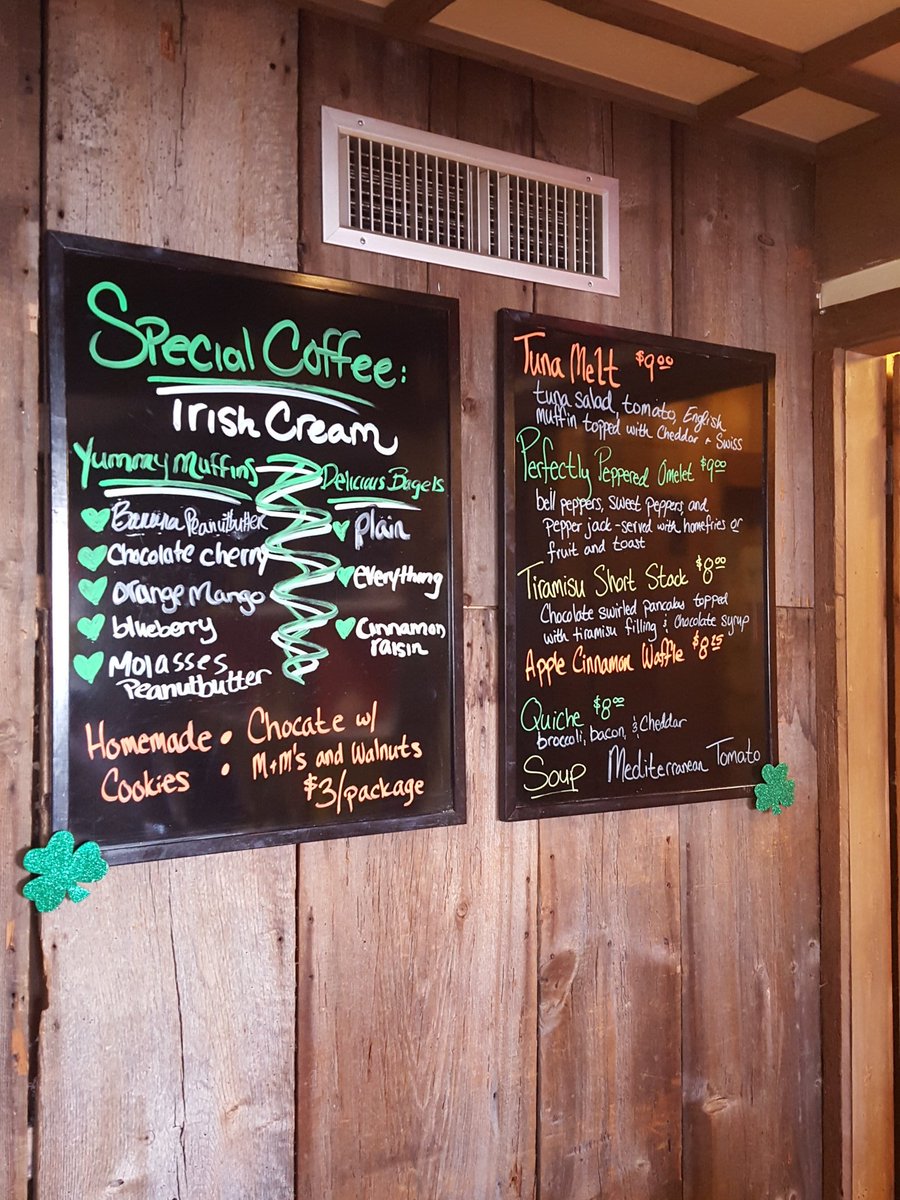 Special Coffee:
Irish Cream
Yummy Muffins
Banana Peanutbutter
Chocolate cherry
orange Mango
blueberry
Molasses
Peanutbutter
Delicious Bagels
plain
everything
Cinnamon
raisin
Homemade • Chocate w/
Cookies • M+M's and Walnuts
$3/package
Tuna Melt $9.00
tuna salad, tomato, English
muffin topped with Cheddar + Swiss
Perfectly Peppered Omelet $9.00
bell peppers, sweet peppers, and
pepper jack - served with homefries or
fruit and toast
Tiramisu Short Stack $8.00
Chocolate swirled pancakes topped
with tiramisu filling & chocolate syrup
Apple Cinnamon Waffle $8.25
Quiche $8.00
broccoli, bacon, & Cheddar
Soup Mediterranean Tomato